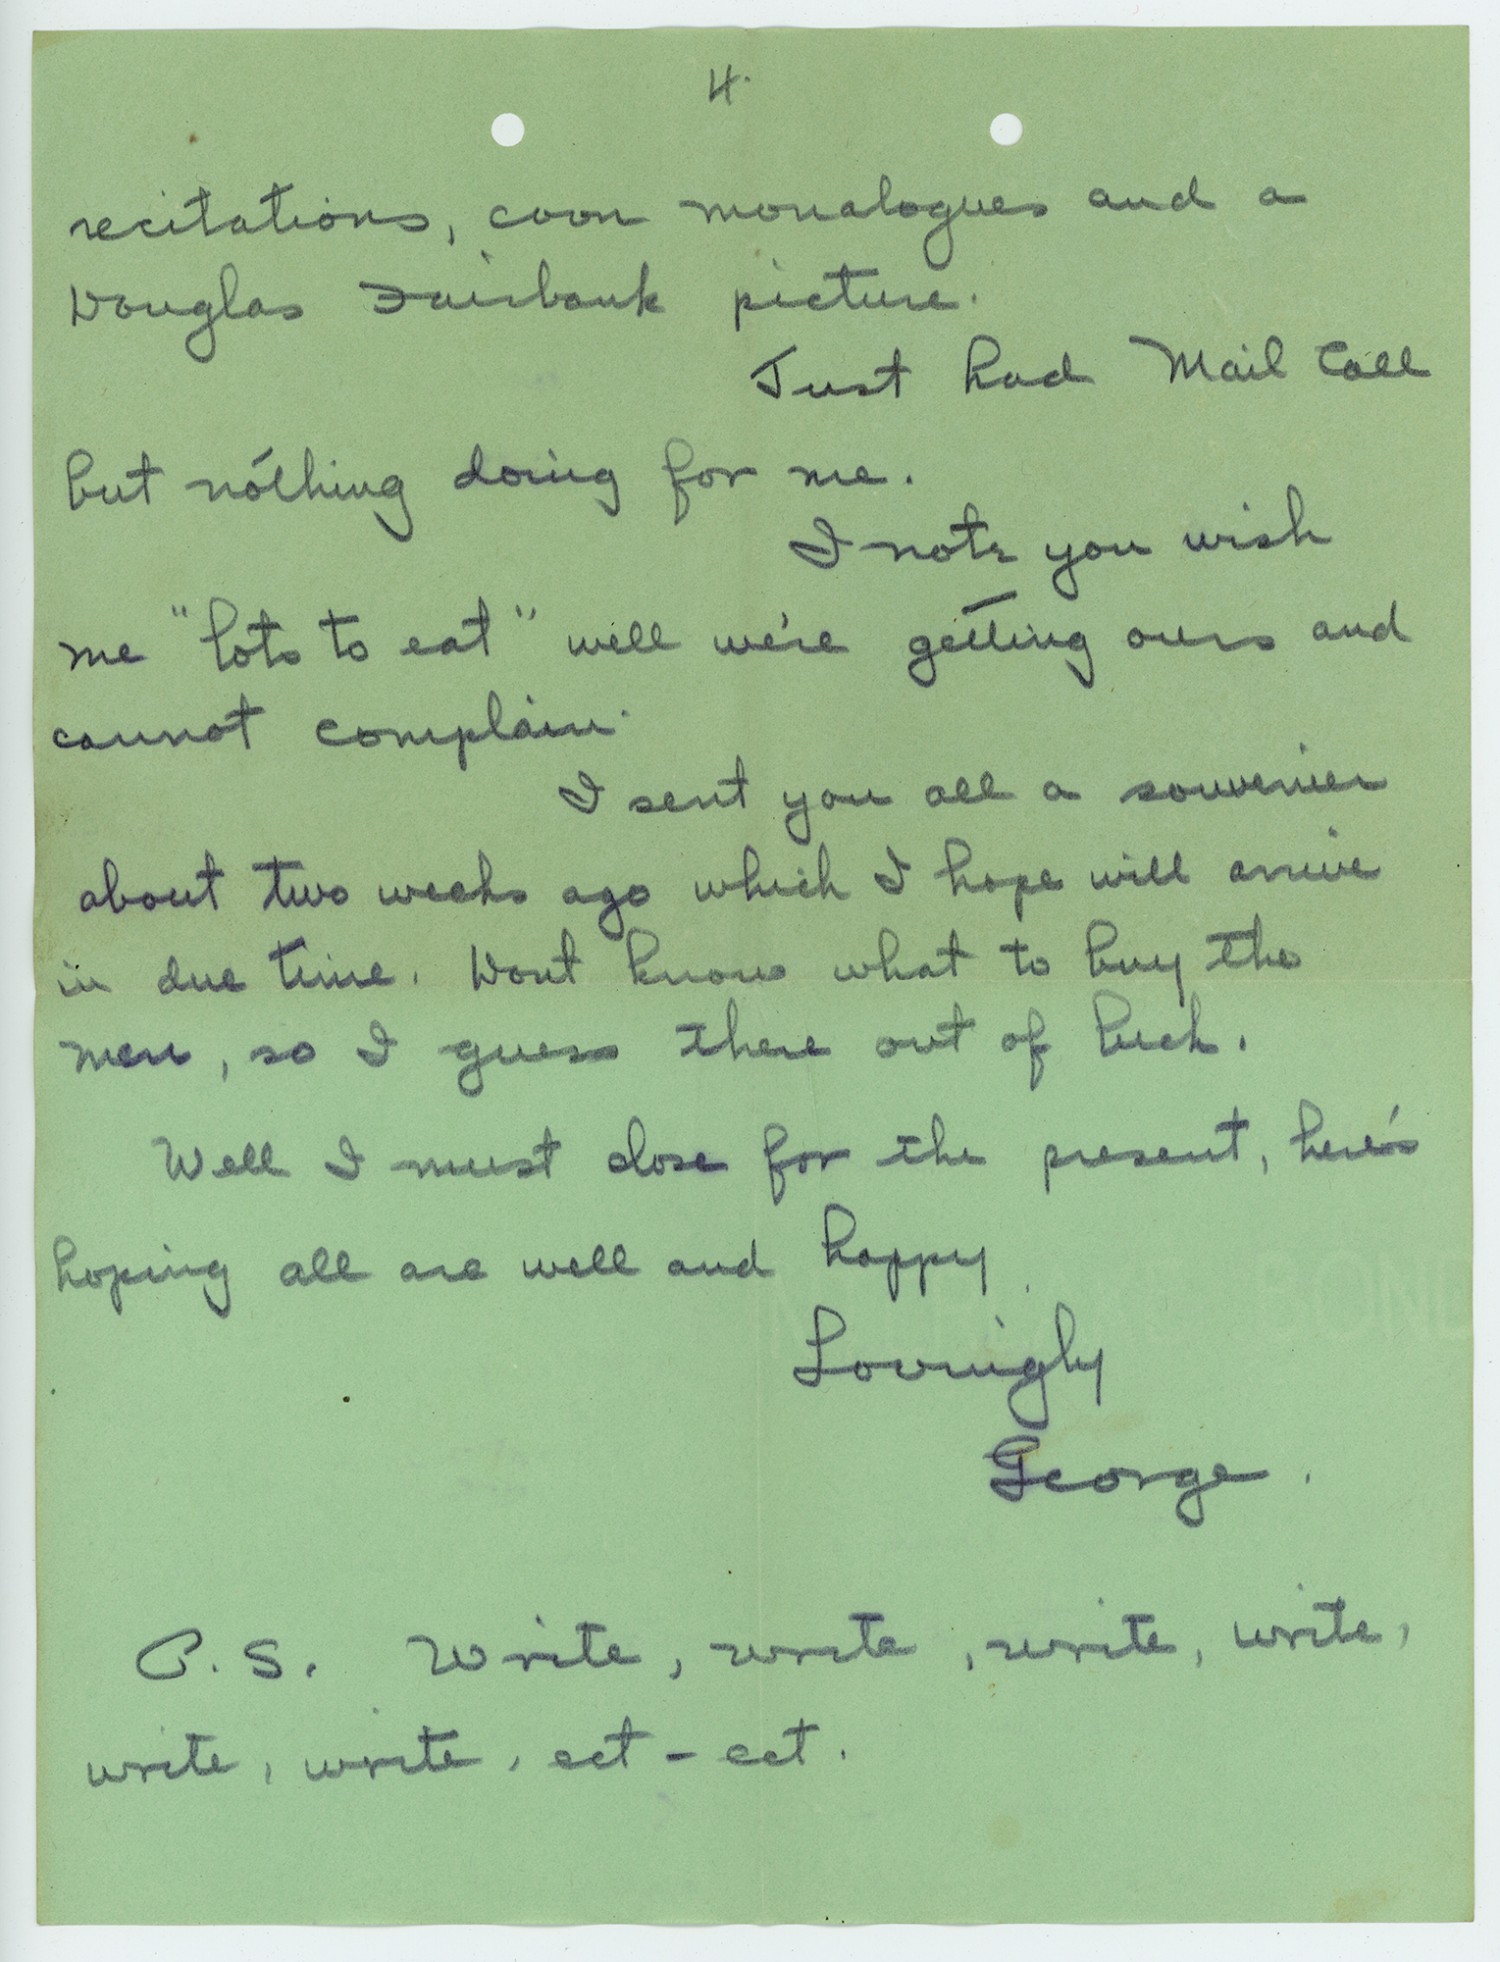 4.
recitations, coon monalogues and a
Douglas Fairbank picture.
Just had Mail Call
but nothing doing for me.
I note you wish
me "lots to eat" well we're getting ours and
cannot complain.
I sent you all a souvenier
about two weeks ago which I hope will arrive
in due time. Dont know what to buy the
men, so I guess there out of luck.
Well I must close for the present, here's
hoping all are well and happy.
Lovingly
George.
P.S. Write, write, write, write,
write, write, ect - ect.